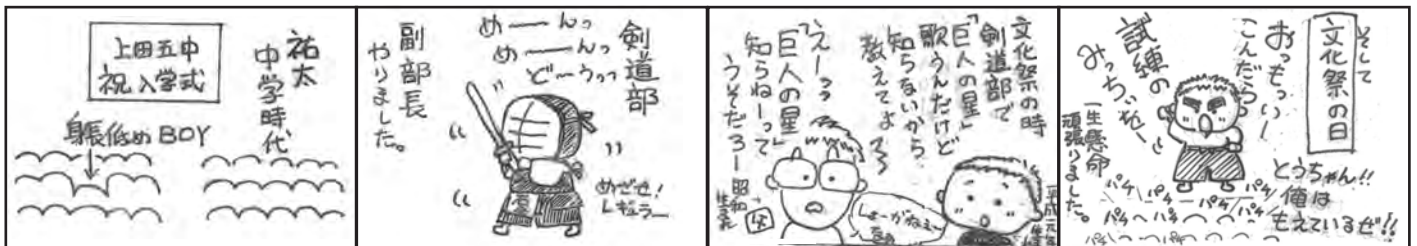 祐太
中学時代
上田五中
祝 入学式
身長低め BOY
剣道部
め――んっ
め――んっ
ど――うっっ
副部長
やりました。
めざせ!
レギュラー
文化祭の時
剣道部で
「巨人の星」
歌うんだけど
知らないから
教えてよ〜
平成元年
えーっっ
「巨人の星」
知らねーって
うそだろー
昭和
生まれ
父
しょーがねぇー
なぁ
そして
文化祭の日
おっもい〜
こんだら
試練の
みっちぃを〜
一生懸命
頑張りました。
とうちゃん!!
俺は
もえているぜ!!
パチ パチ パチ パチ
パチ パチ パチ
パチ パチ